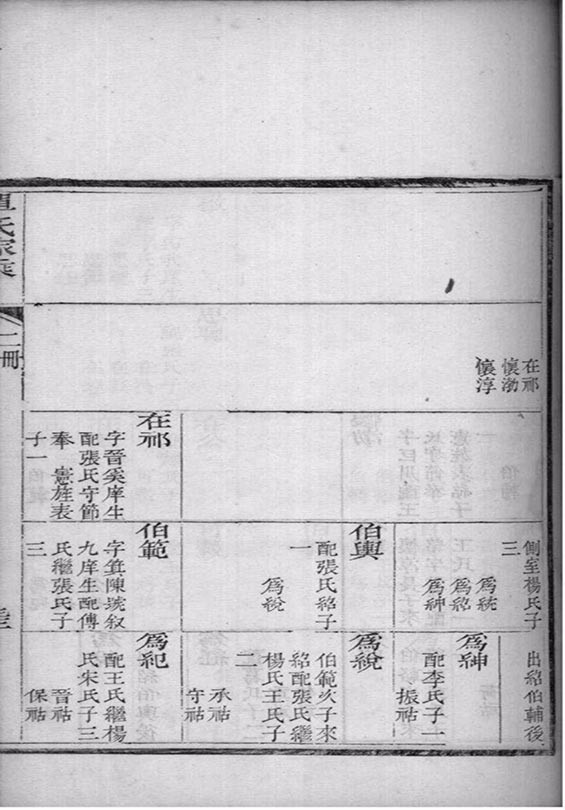 在祁
懷渤
懷淳
在祁
字晉奚庠生
配張氏守節
奉 憲旌表
子一
側室楊氏子
三
爲統
爲紹
爲紳
伯輿
配張氏紹子
一
爲綐
伯範
字箕陳號叙
九庠生配傅
氏繼張氏子
三
出紹伯輔後
爲紳
配李氏子一
振祜
爲綐
伯範次子來
紹配張氏繼
楊氏王氏子
二
承祜
守祜
爲紀
配王氏繼楊
氏宋氏子三
晉祜
保祜
氏家乘
二冊